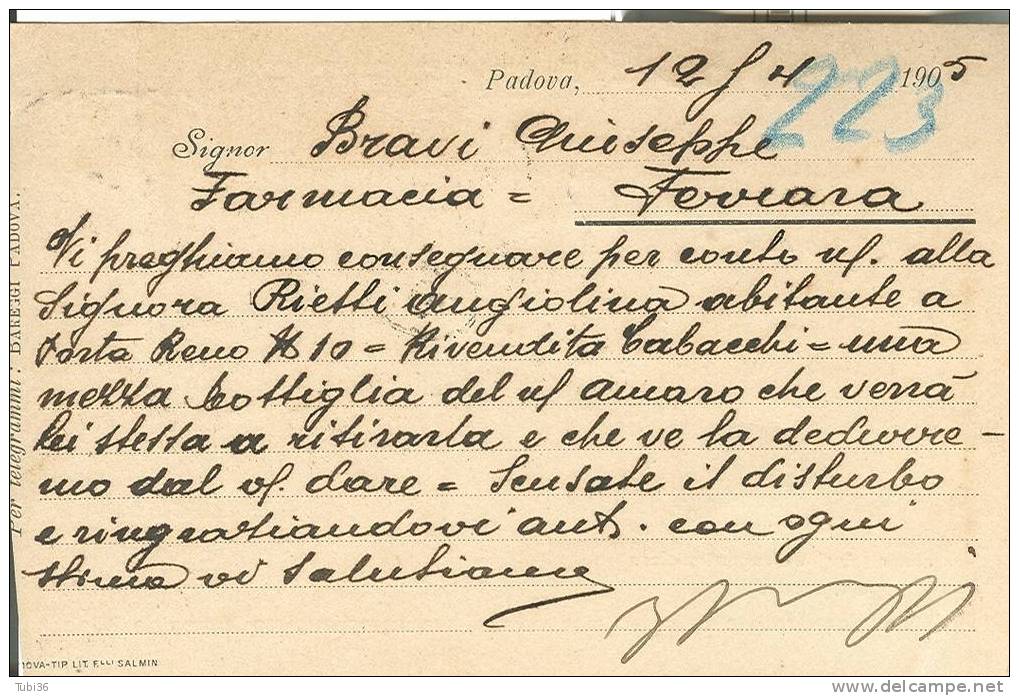 Padova, 12/4 1905
223
Signor Bravi Giuseppe
Farmacia = Ferrara
Vi preghiamo consegnare per conto ns/. alla
Signora Rietti Angiolina abitante a
Porta Reno N 10 = Rivendita Tabacchi = una
mezza bottiglia del ns/ Amaro che verrà
lei stessa a ritirarla e che ve la dedurre-
mo dal vs/. dare = Scusate il disturbo
e ringratiandovi ant. con ogni
stima vi salutiamo
Per telegrammi: BAREGGI PADOVA.
OVA-TIP LIT. F.LLI SALMIN
Tubi36
www.delcampe.net